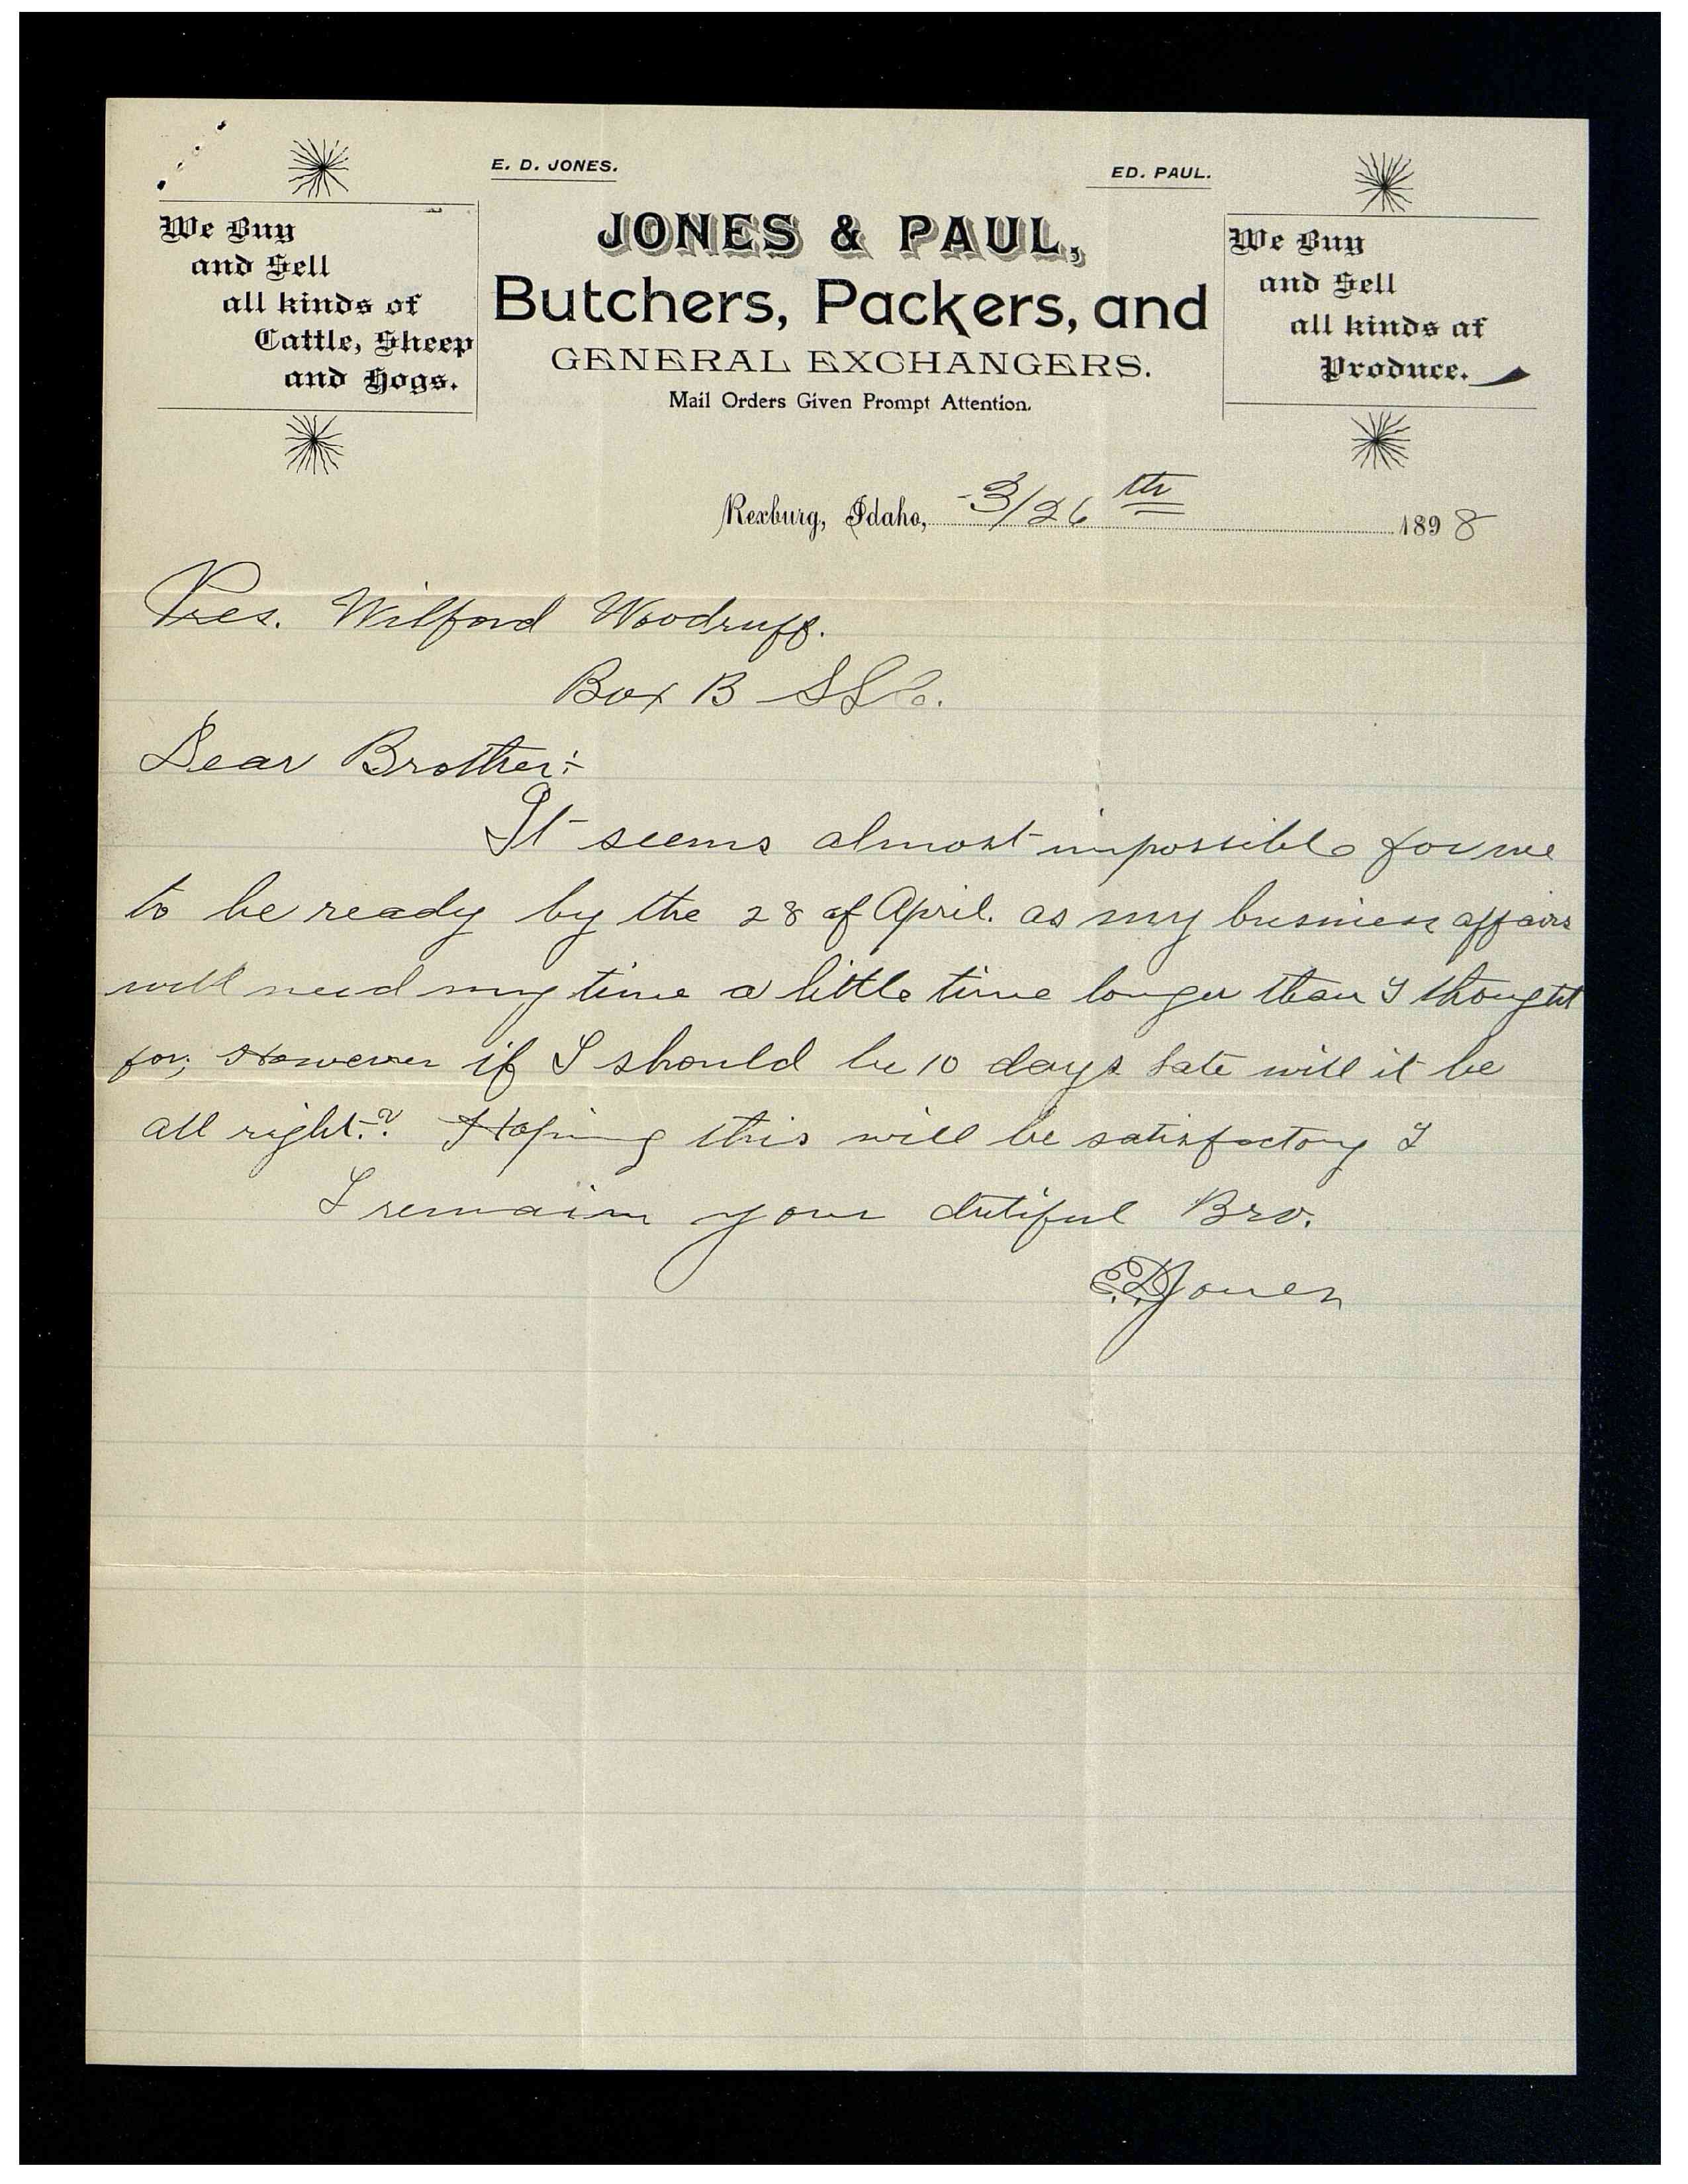 E. D. JONES.
ED. PAUL.
We Buy
and Sell
all kinds of
Cattle, Sheep
and Hogs.
JONES & PAUL,
Butchers, Packers, and
GENERAL EXCHANGERS.
Mail Orders Given Prompt Attention.
We Buy
and Sell
all kinds of
Produce.
Rexburg, Idaho, 3/26th 1898
Pres. Wilford Woodruff.
Box B S L C.
Dear Brother:-
It seems almost impossible for me
to be ready by the 28 of April. as my business affairs
will need my time a little time longer than I thought
for; However if I should be 10 days late will it be
all right.? Hoping this will be satisfactory I
I remain your dutiful Bro.
E.D. Jones